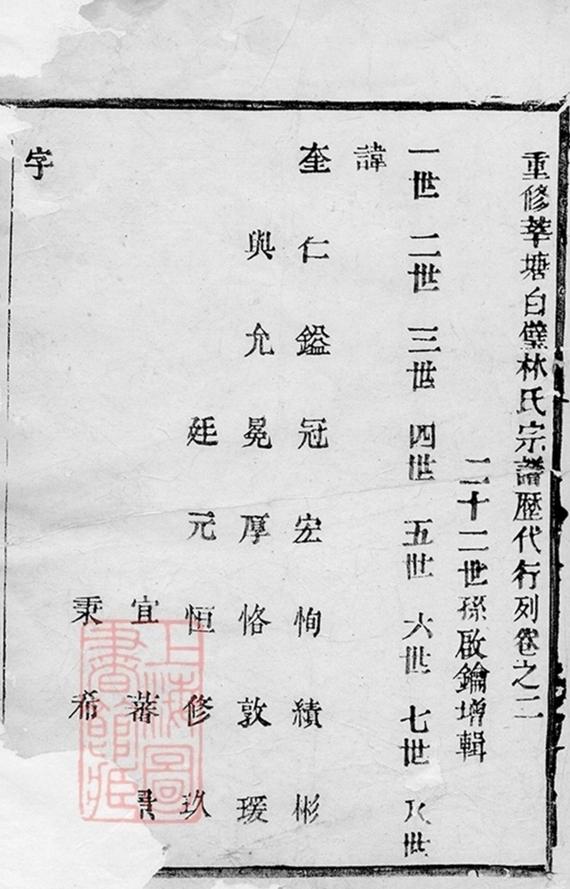 重修莘塘白璧林氏宗譜歷代行列卷之二
二十二世孫啟鑰增輯
一世 二世 三世 四世 五世 六世 七世 八世
諱
奎 仁 鎰 冠 宏 恂 績 彬
與 允 冕 厚 恪 敦 瑗
廷 元 恒 修 玖
宜 蕃
秉 希
字
上海圖書館藏